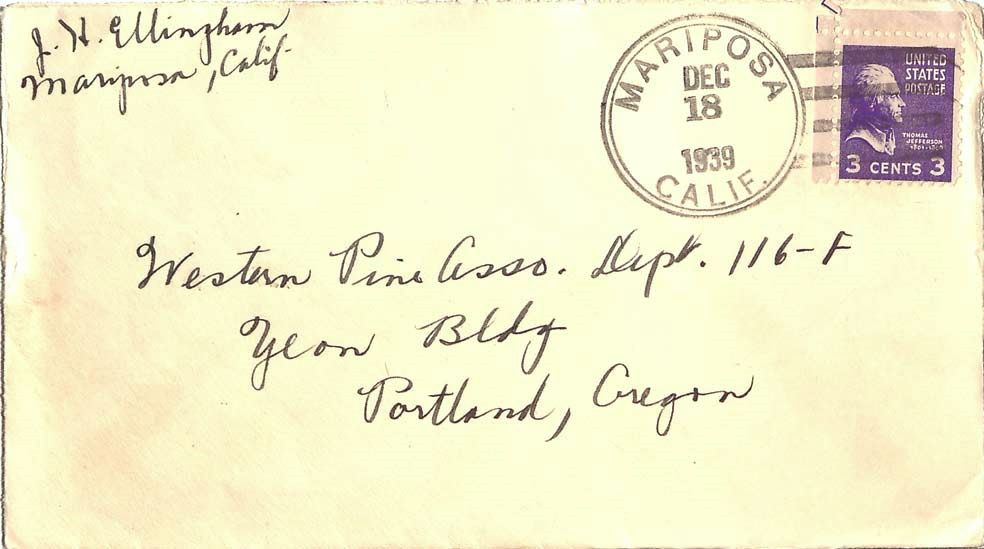 J. H. Ellingham
Mariposa, Calif
MARIPOSA
DEC
18
1939
CALIF.
UNITED
STATES
POSTAGE
THOMAS
JEFFERSON
3 CENTS 3
Western Pine Asso. Dept. 116-F
Yeon Bldg
Portland, Oregon